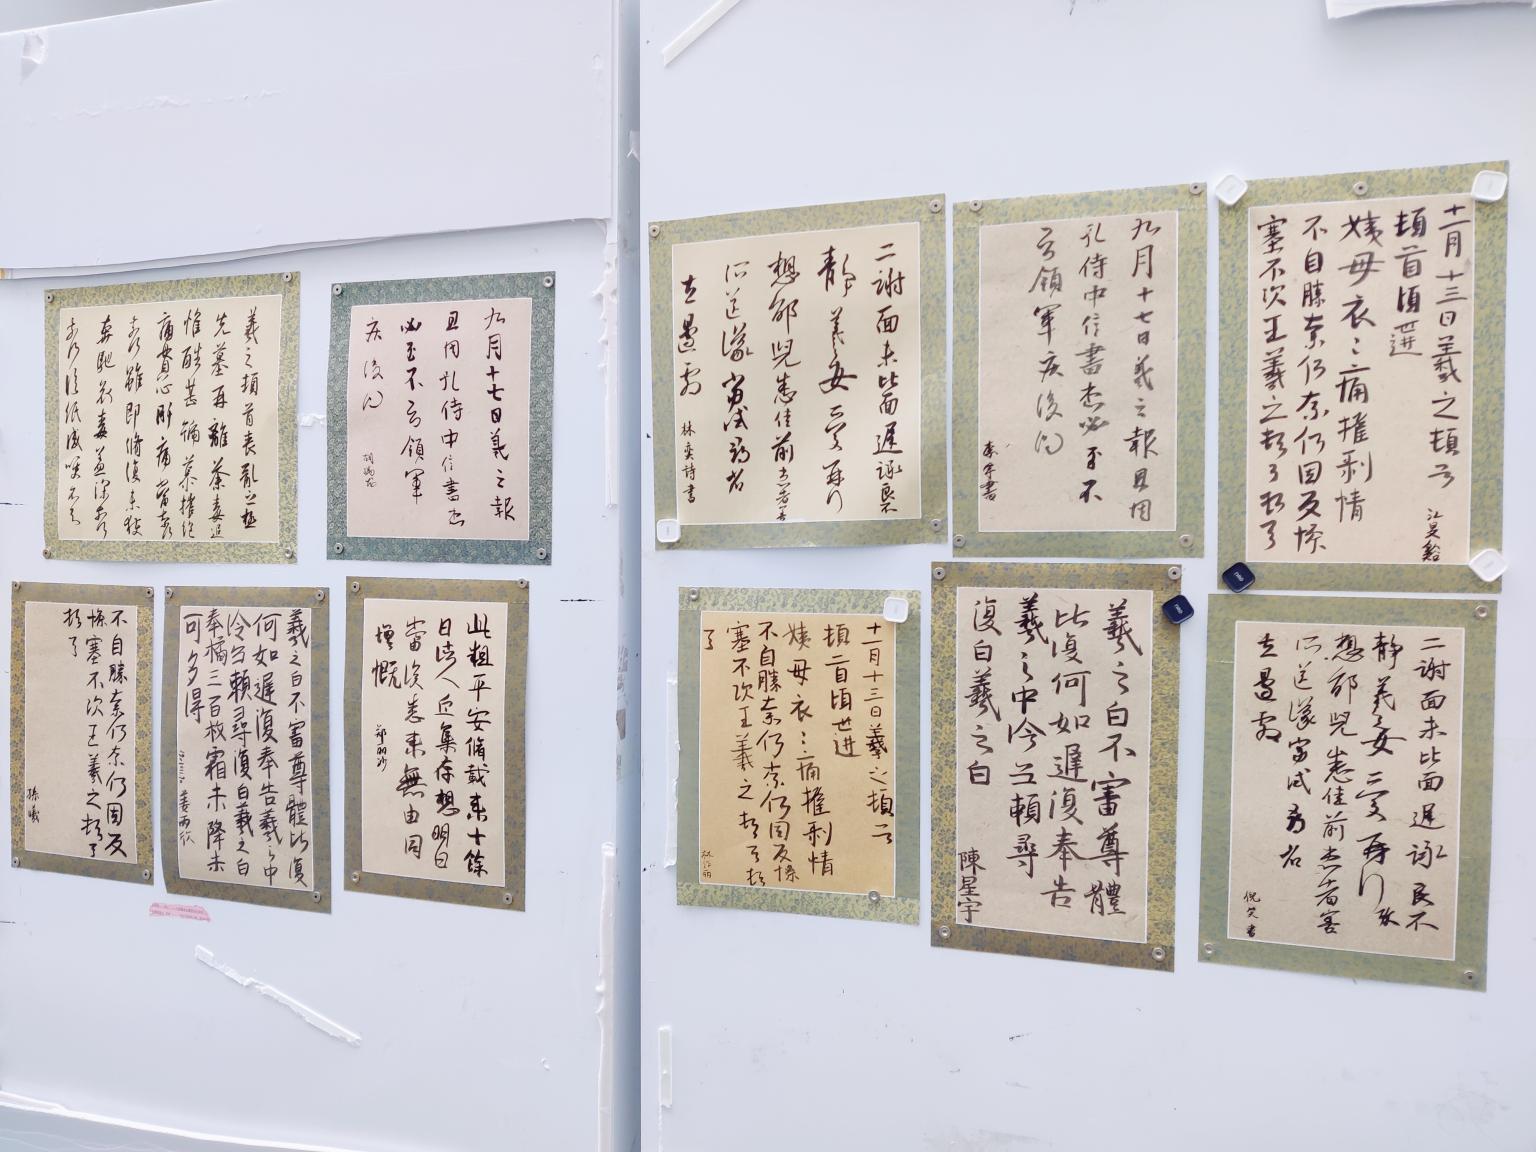 羲之頓首喪亂之極
先墓再離荼毒追
惟酷甚號慕摧絕
痛貫心肝痛當奈
奈何雖即脩復未獲
奔馳哀毒益深奈何
奈何臨紙感哽不知
九月十七日羲之報
且因孔侍中信書想
必至不知領軍
疾後問
不自勝奈何奈何因反
慘塞不次王羲之頓首
頓首
孫曦
羲之白不審尊體比復
何如遲復奉告羲之中
冷無賴尋復白羲之白
奉橘三百枚霜未降未
可多得
姜雨欣
此粗平安脩載來十餘
日諸人近集存想明日
當復悉來無由同
增慨
二謝面未比面遲詠良不
靜羲女愛再行
想邵兒悉佳前患者善
所送議當試尋省
左邊劇
林奕詩書
九月十七日羲之報且因
孔侍中信書想必至不
知領軍疾後問
十一月十三日羲之頓首
頓首頃遘
姨母哀哀痛摧剝情
不自勝奈何奈何因反慘
塞不次王羲之頓首頓首
十一月十三日羲之頓首
頓二首頃世進
姨母哀哀痛摧剝情
不自勝奈何奈何因反慘
塞不次王羲之頓首頓
首
羲之白不審尊體
比復何如遲復奉告
羲之中冷無賴尋
復白羲之白
陳星宇
二謝面未比面遲詠良不
靜羲女愛再行致
想邵兒悉佳前患者善
所送議當試尋省
左邊劇
倪笑書